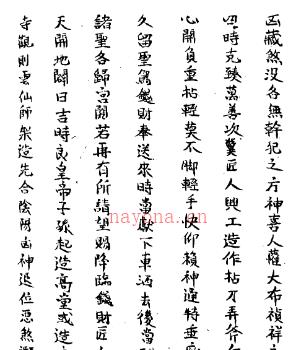 凶藏煞没各無幹犯之方神喜人薩大布禎祥
四時克致萬善次冀匠人興工造作拈刀弄斧
心開負重拈輕莫不脚輕手快仰賴神通特垂
久留聖駕錢財奉送來時當獻下車酒去後當
諸聖各歸宮闕若再有所請望賜降臨錢財匠
天開地闢日吉時良皇帝子孫起造高堂或造
寺觀則要仙師架造先合陰陽凶神退位惡煞
nayona.cn